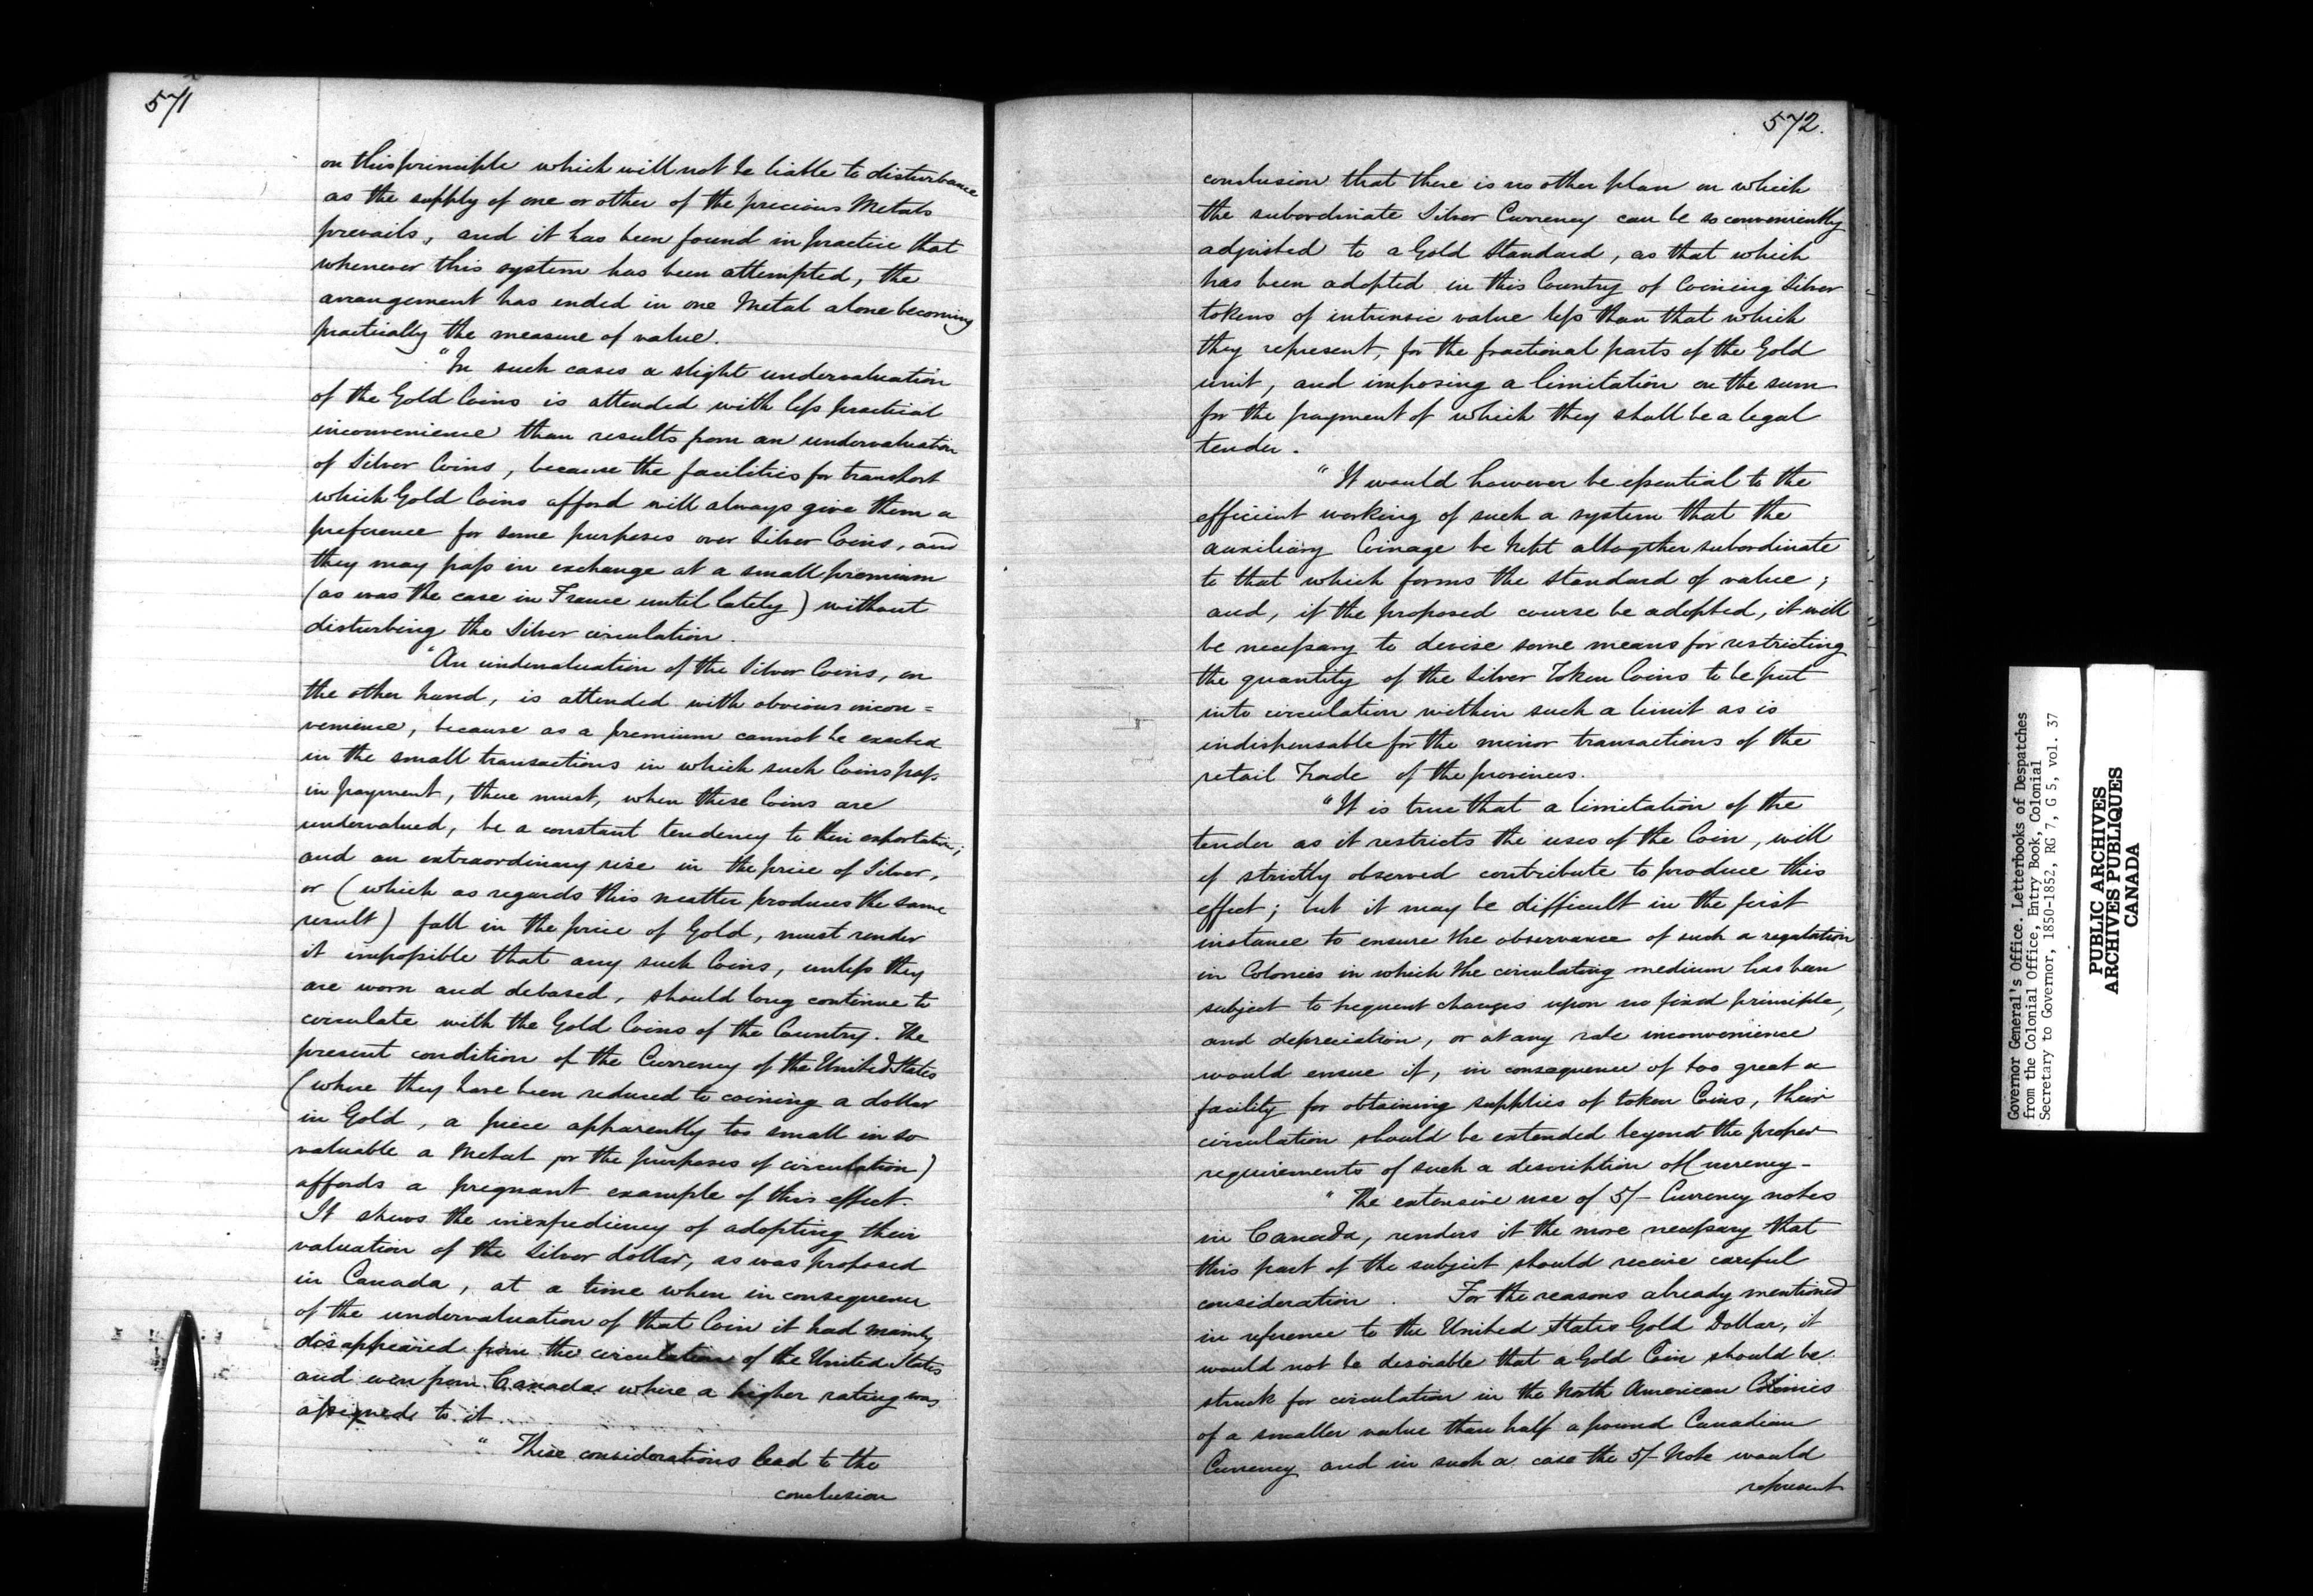 571
on this principle which will not be liable to disturbance
as the supply of one or other of the precious Metals
prevails, and it has been found in practice that
whenever this system has been attempted, the
arrangement has ended in one Metal alone becoming
practically the measure of value.
"In such cases a slight undervaluation
of the Gold Coins is attended with less practical
inconvenience than results from an undervaluation
of Silver Coins, because the facilities for transport
which Gold Coins afford will always give them a
preference for some purposes over Silver Coins, and
they may pass in exchange at a small premium
(as was the case in France until lately) without
disturbing the Silver circulation.
"An undervaluation of the Silver Coins, on
the other hand, is attended with obvious incon=
venience, because as a premium cannot be exacted
in the small transactions in which such Coins pass
in payment, there must, when these Coins are
undervalued, be a constant tendency to their exportation;
and an extraordinary rise in the price of Silver,
or (which as regards this matter produces the same
result) fall in the price of Gold, must render
it impossible that any such Coins, unless they
are worn and debased, should long continue to
circulate with the Gold Coins of the Country. The
present condition of the Currency of the United States
(where they have been reduced to coining a dollar
in Gold, a piece apparently too small in so
valuable a Metal for the purposes of circulation)
affords a pregnant example of this effect.
It shews the inexpediency of adopting their
valuation of the Silver dollar, as was proposed
in Canada, at a time when in consequence
of the undervaluation of that Coin it had mainly
disappeared from the circulation of the United States
and even from Canada where a higher rating was
assigned to it.
" These considerations lead to the
conclusion
572.
conclusion that there is no other plan on which
the subordinate Silver Currency can be so conveniently
adjusted to a Gold Standard, as that which
has been adopted in this Country of Coining Silver
tokens of intrinsic value less than that which
they represent, for the fractional parts of the Gold
unit, and imposing a limitation on the sum
for the payment of which they shall be a legal
tender.
"It would however be essential to the
efficient working of such a system that the
auxiliary Coinage be kept altogther subordinate
to that which forms the standard of value;
and, if the proposed course be adopted, it will
be necessary to devise some means for restricting
the quantity of the Silver Token Coins to be put
into circulation within such a limit as is
indispensable for the minor transactions of the
retail Trade of the provinces.
"It is true that a limitation of the
tender as it restricts the uses of the Coin, will
if strictly observed contribute to produce this
effect; but it may be difficult in the first
instance to ensure the observance of such a regulation
in Colonies in which the circulating medium has been
subject to frequent changes upon no fixed principle,
and depreciation, or at any rate inconvenience
would ensue if, in consequence of too great a
facility for obtaining supplies of token Coins, their
circulation should be extended beyond the proper
requirements of such a description of Currency-
" The extensive use of 5/- Currency notes
in Canada, renders it the more necessary that
this part of the subject should receive careful
consideration. For the reasons already mentioned
in reference to the United States Gold Dollar, it
would not be desirable that a Gold Coin should be
struck for circulation in the North American Colonies
of a smaller value than half a pound Canadian
Currency and in such a case the 5/- Note would
represent
Governor General's Office. Letterbooks of Despatches
from the Colonial Office, Entry Book, Colonial
Secretary to Governor, 1850-1852, RG 7, G 5, vol. 37
PUBLIC ARCHIVES
ARCHIVES PUBLIQUES
CANADA